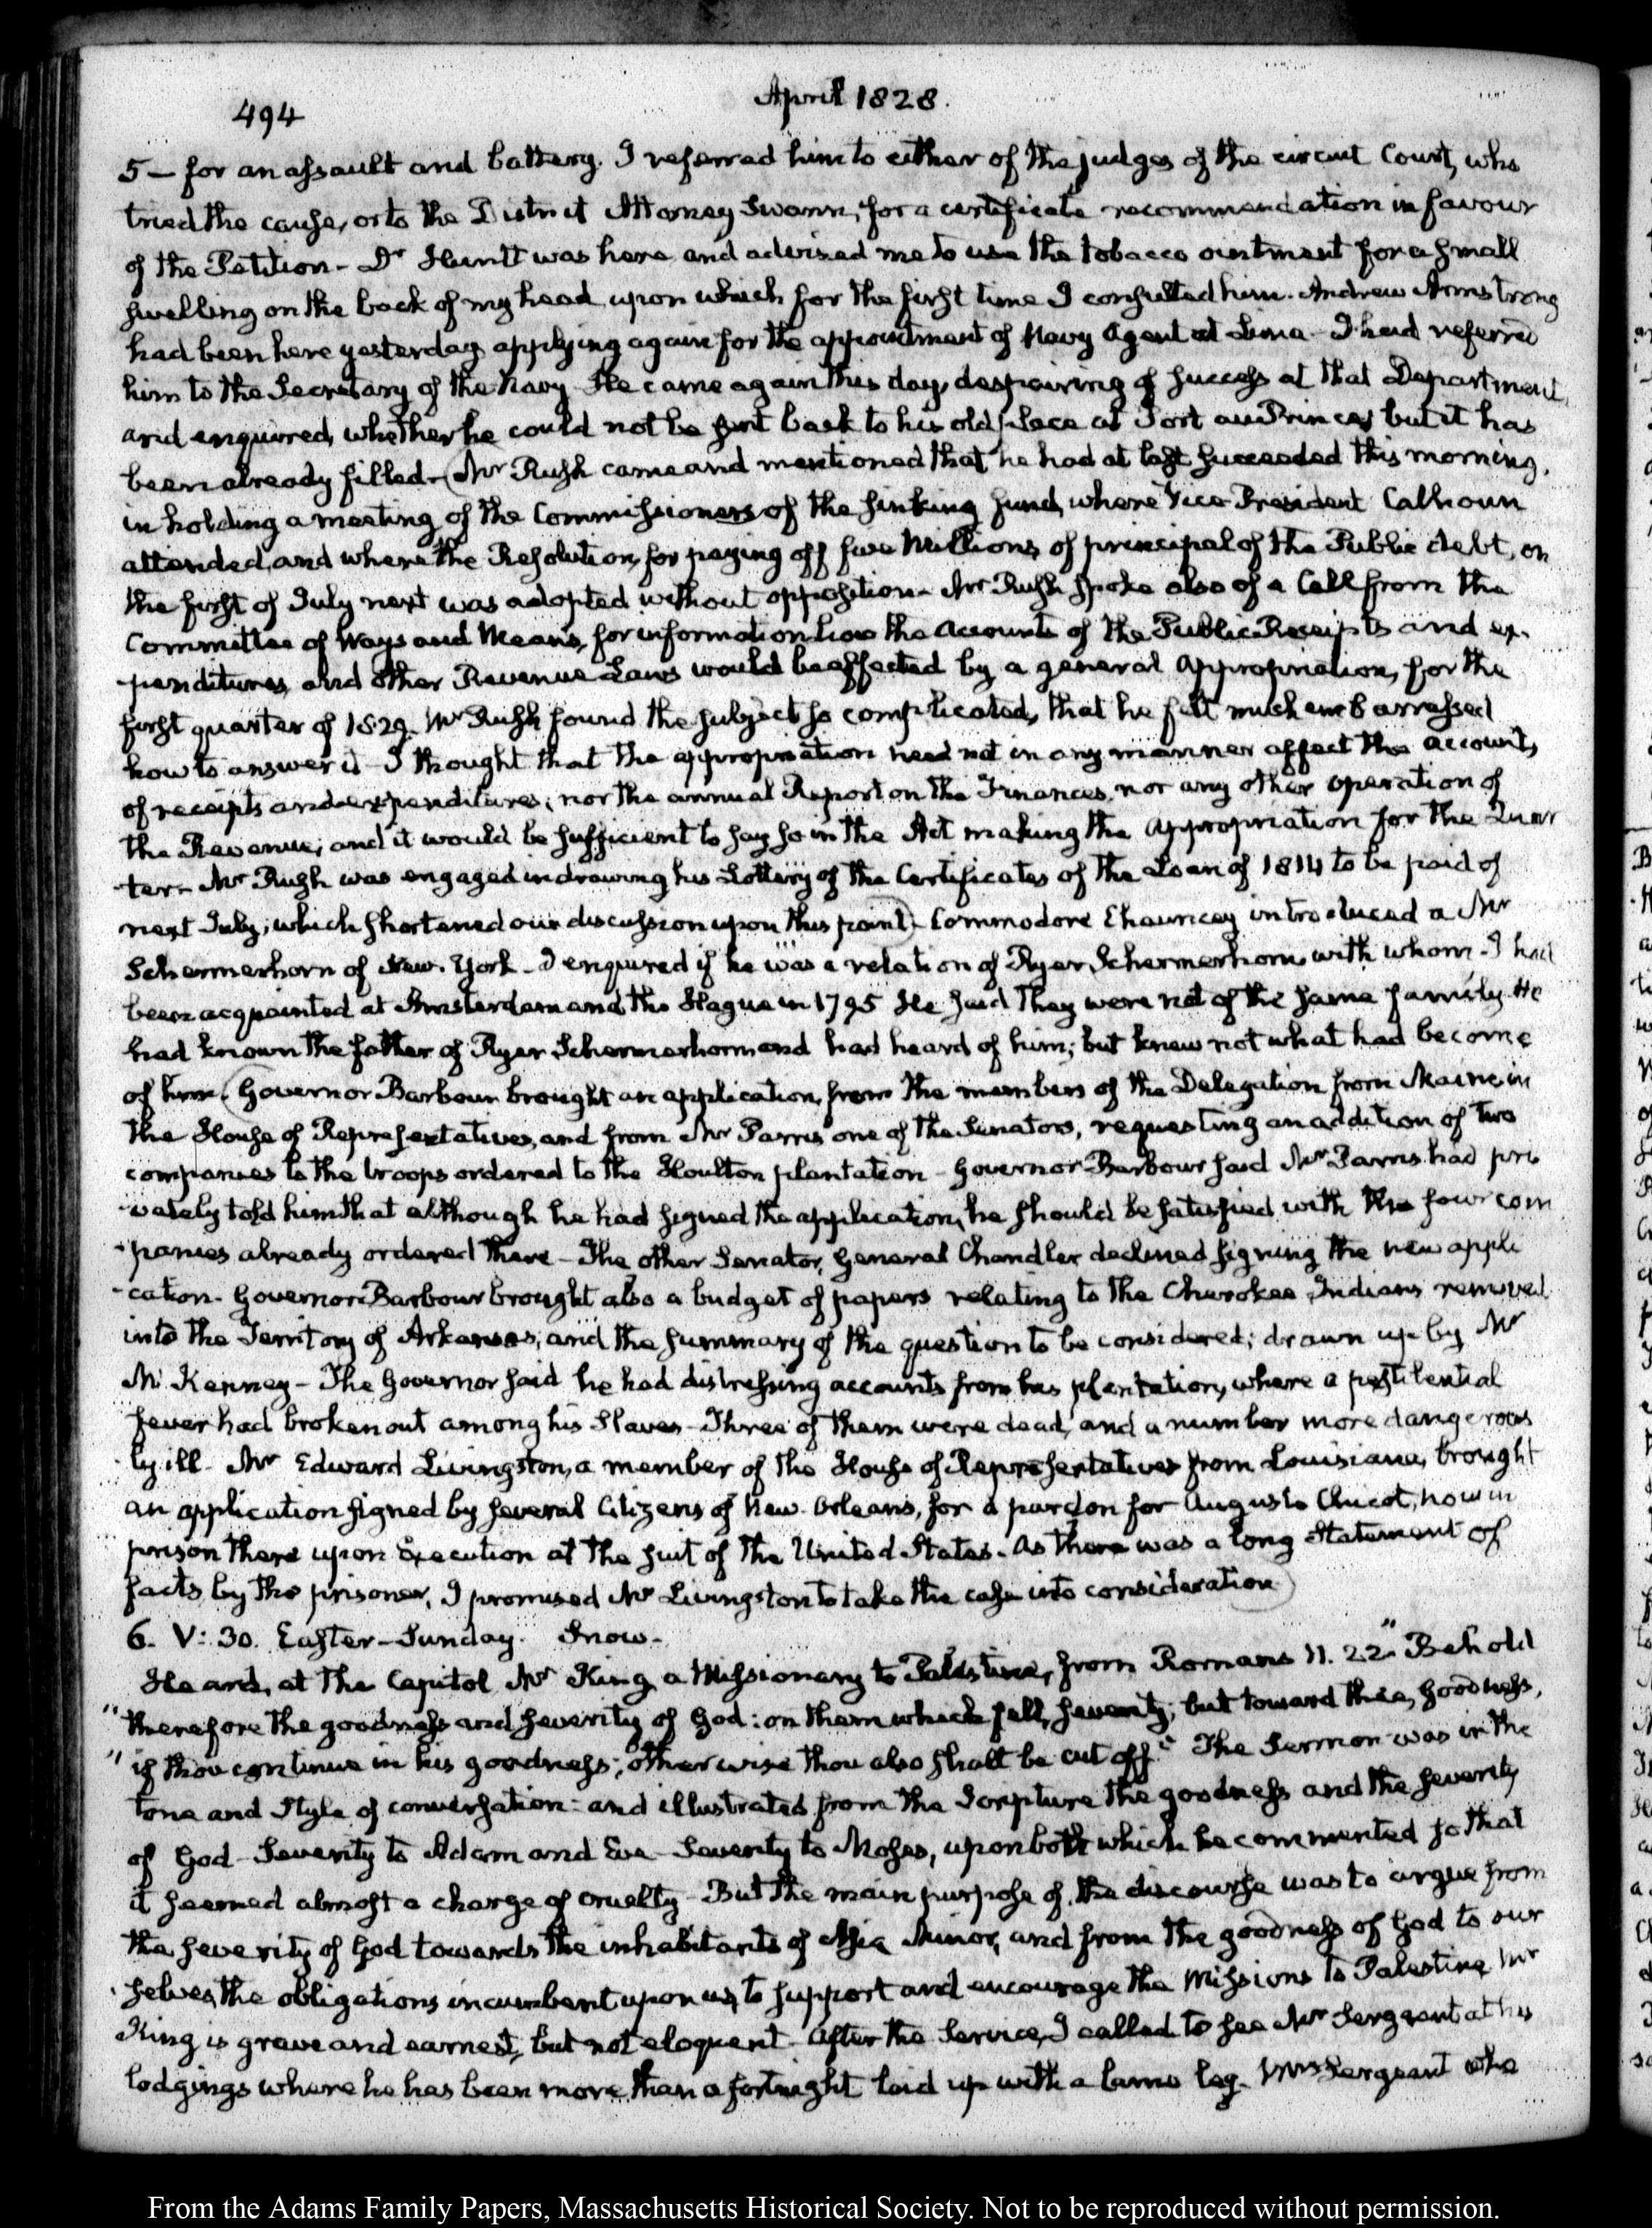 494
April 1828.
5 — for an assault and battery. I referred him to either of the judges of the circuit Court, who
tried the cause, or to the District Attorney Swann, for a certificate recommendation in favour
of the Petition - Dr Huntt was here and advised me to use the tobacco ointment for a small
swelling on the back of my head, upon which for the first time I consulted him. Andrew Armstrong
had been here yesterday applying again for the appointment of Navy Agent at Lima - I had referred
him to the Secretary of the Navy - He came again this day, despairing of success at that Department,
and enquired, whether he could not be sent back to his old place at Port au Prince, but it has
been already filled - (Mr Rush came and mentioned that he had at last succeeded this morning,
in holding a meeting of the Commissioners of the sinking fund, where Vice President Calhoun
attended, and where the Resolution, for paying off five Millions of principal of the Public debt, on
the first of July next was adopted without opposition - Mr Rush spoke also of a Call from the
Committee of Ways and Means, for information how the Accounts of the Public Receipts and ex-
-penditures, and other Revenue Laws would be affected by a general Appropriation, for the
first quarter of 1829. Mr Rush found the subject so complicated, that he felt much embarrassed
how to answer it - I thought that the appropriation need not in any manner affect the accounts,
of receipts and expenditures; nor the annual Report on the Finances, nor any other operation of
the Revenue; and it would be sufficient to say so in the Act making the Appropriation for the Quar
-ter - Mr Rush was engaged in drawing his Lottery of the Certificates of the Loan of 1814 to be paid of
next July; which shortened our discussion upon this point) - Commodore Chauncey introduced a Mr
Schermerhorn of New-York - I enquired if he was a relation of Ryer Schermerhorn, with whom I had
been acquainted at Amsterdam and the Hague in 1795 He said they were not of the same family. He
had known the father of Ryer Schermerhorn and had heard of him; but knew not what had become
of him. (Governor Barbour brought an application, from the members of the Delegation from Maine in
the House of Representatives, and from Mr Parris one of the Senators, requesting an addition of two
companies to the troops ordered to the Houlton plantation - Governor Barbour said Mr Parris had pri
-vately told him that although he had signed the application, he should be satisfied with the four com
-panies already ordered there - The other Senator, General Chandler declined signing the new appli
-cation - Governor Barbour brought also a budget of papers relating to the Cherokee Indians removed
into the Territory of Arkansas, and the summary of the question to be considered; drawn up by Mr
Mc Kenney - The Governor said he had distressing accounts from his plantation, where a pestilential
fever had broken out among his Slaves - Three of them were dead, and a number more dangerous
-ly ill - Mr Edward Livingston, a member of the House of Representatives from Louisiana, brought
an application signed by several Citizens of New-Orleans, for a pardon for Auguste Chucot, now in
prison there upon Execution at the suit of the United States. As there was a long Statement of
facts by the prisoner, I promised Mr Livingston to take the case into consideration)
6. V: 30. Easter-Sunday. Snow -
Heard, at the Capitol Mr King, a Missionary to Palestine, from Romans 11. 22 " Behold
" therefore the goodness and severity of God: on them which fell, severity; but toward thee, goodness,
" if thou continue in his goodness; otherwise thou also shalt be cut off." The Sermon was in the
tone and style of conversation: and illustrated from the Scripture the goodness and the severity
of God - Severity to Adam and Eve - Severity to Moses, upon both which he commented so that
it seemed almost a charge of cruelty - But the main purpose of the discourse was to argue from
the severity of God towards the inhabitants of Asia Minor, and from the goodness of God to our
-selves, the obligations incumbent upon us, to support and encourage the Missions to Palestine Mr
King is grave and earnest, but not eloquent - After the Service, I called to see Mr Sergeant at his
lodgings where he has been more than a fortnight laid up with a lame leg. Mrs Sergeant who
From the Adams Family Papers, Massachusetts Historical Society. Not to be reproduced without permission.